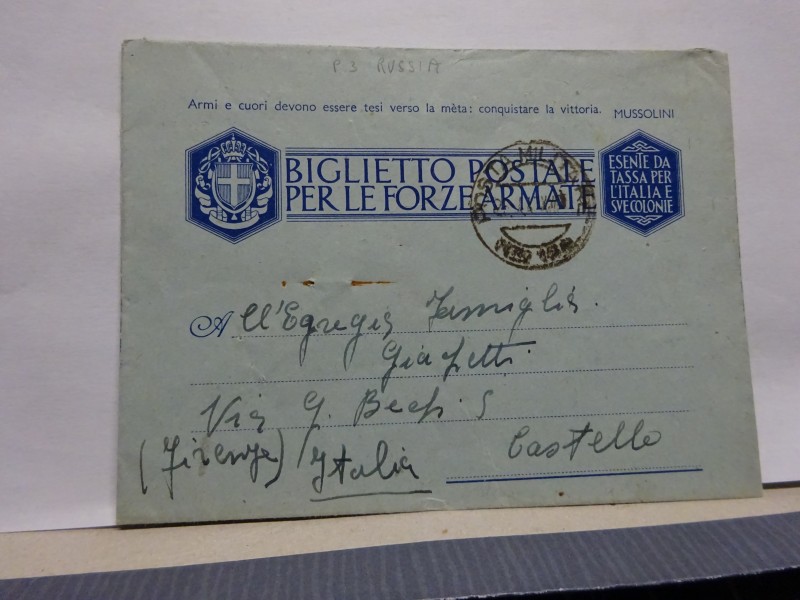 P. 3 RUSSIA
Armi e cuori devono essere tesi verso la mèta: conquistare la vittoria. MUSSOLINI
BIGLIETTO POSTALE
PER LE FORZE ARMATE
ESENTE DA
TASSA PER
L'ITALIA E
SVE COLONIE
POSTA MILITARE
All'Egregia Famiglia
Giachetti
Via G. 5
Castello
(Firenze) Italia